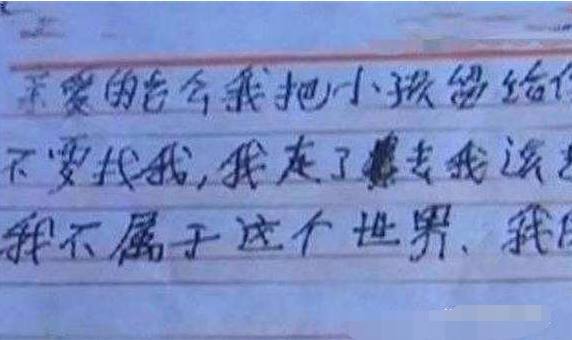 亲爱的老公我把小孩留给你
不要找我,我走了去我该
我不属于这个世界、我